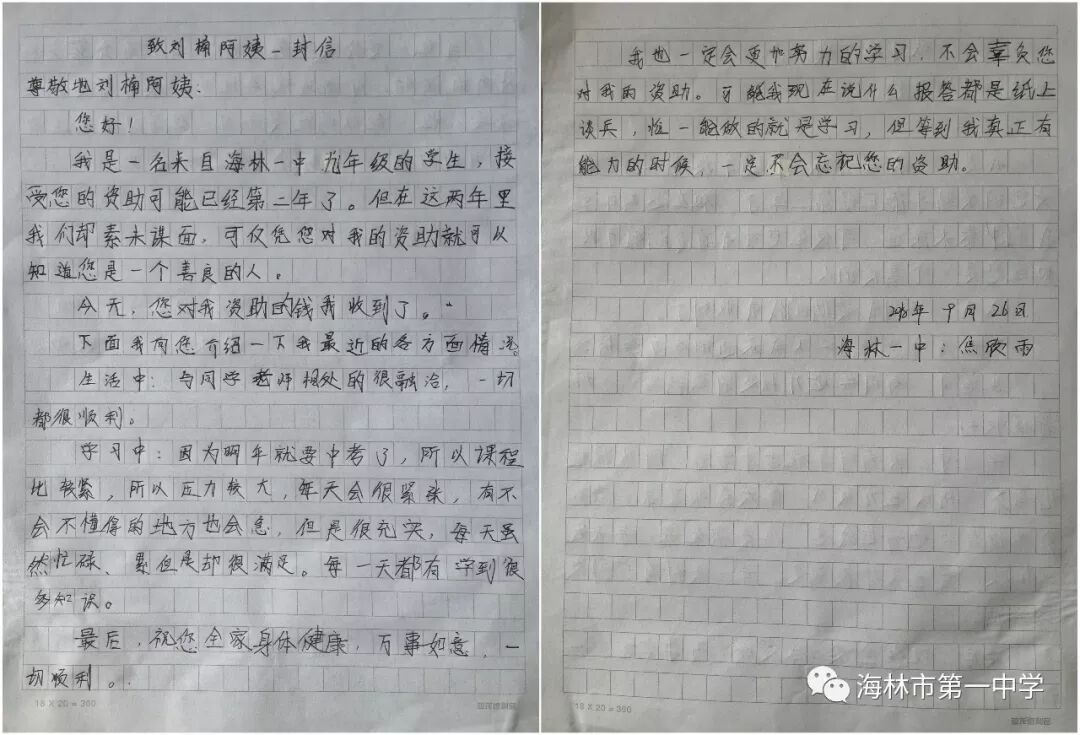 致刘楠阿姨一封信
尊敬地刘楠阿姨：
您好！
我是一名来自海林一中九年级的学生，接
受您的资助可能已经第二年了。但在这两年里
我们却素未谋面，可仅凭您对我的资助就可以
知道您是一个善良的人。
今天，您对我资助的钱我收到了。
下面我向您介绍一下我最近的各方面情况。
生活中：与同学老师相处的很融洽，一切
都很顺利。
学习中：因为明年就要中考了，所以课程
比较紧，所以压力较大，每天会很紧张，有不
会不懂得的地方也会急，但是很充实，每天虽
然忙碌、累但是却很满足。每一天都有学到很
多知识。
最后，祝您全家身体健康，万事如意，一
切顺利。
18 X 20 = 360
我也一定会更加努力的学习，不会辜负您
对我的资助。可能我现在说什么报答都是纸上
谈兵，唯一能做的就是学习，但等到我真正有
能力的时候，一定不会忘记您的资助。
年 9月 26日
海林一中：焦欣雨
海林市第一中学
18 X 20 = 360